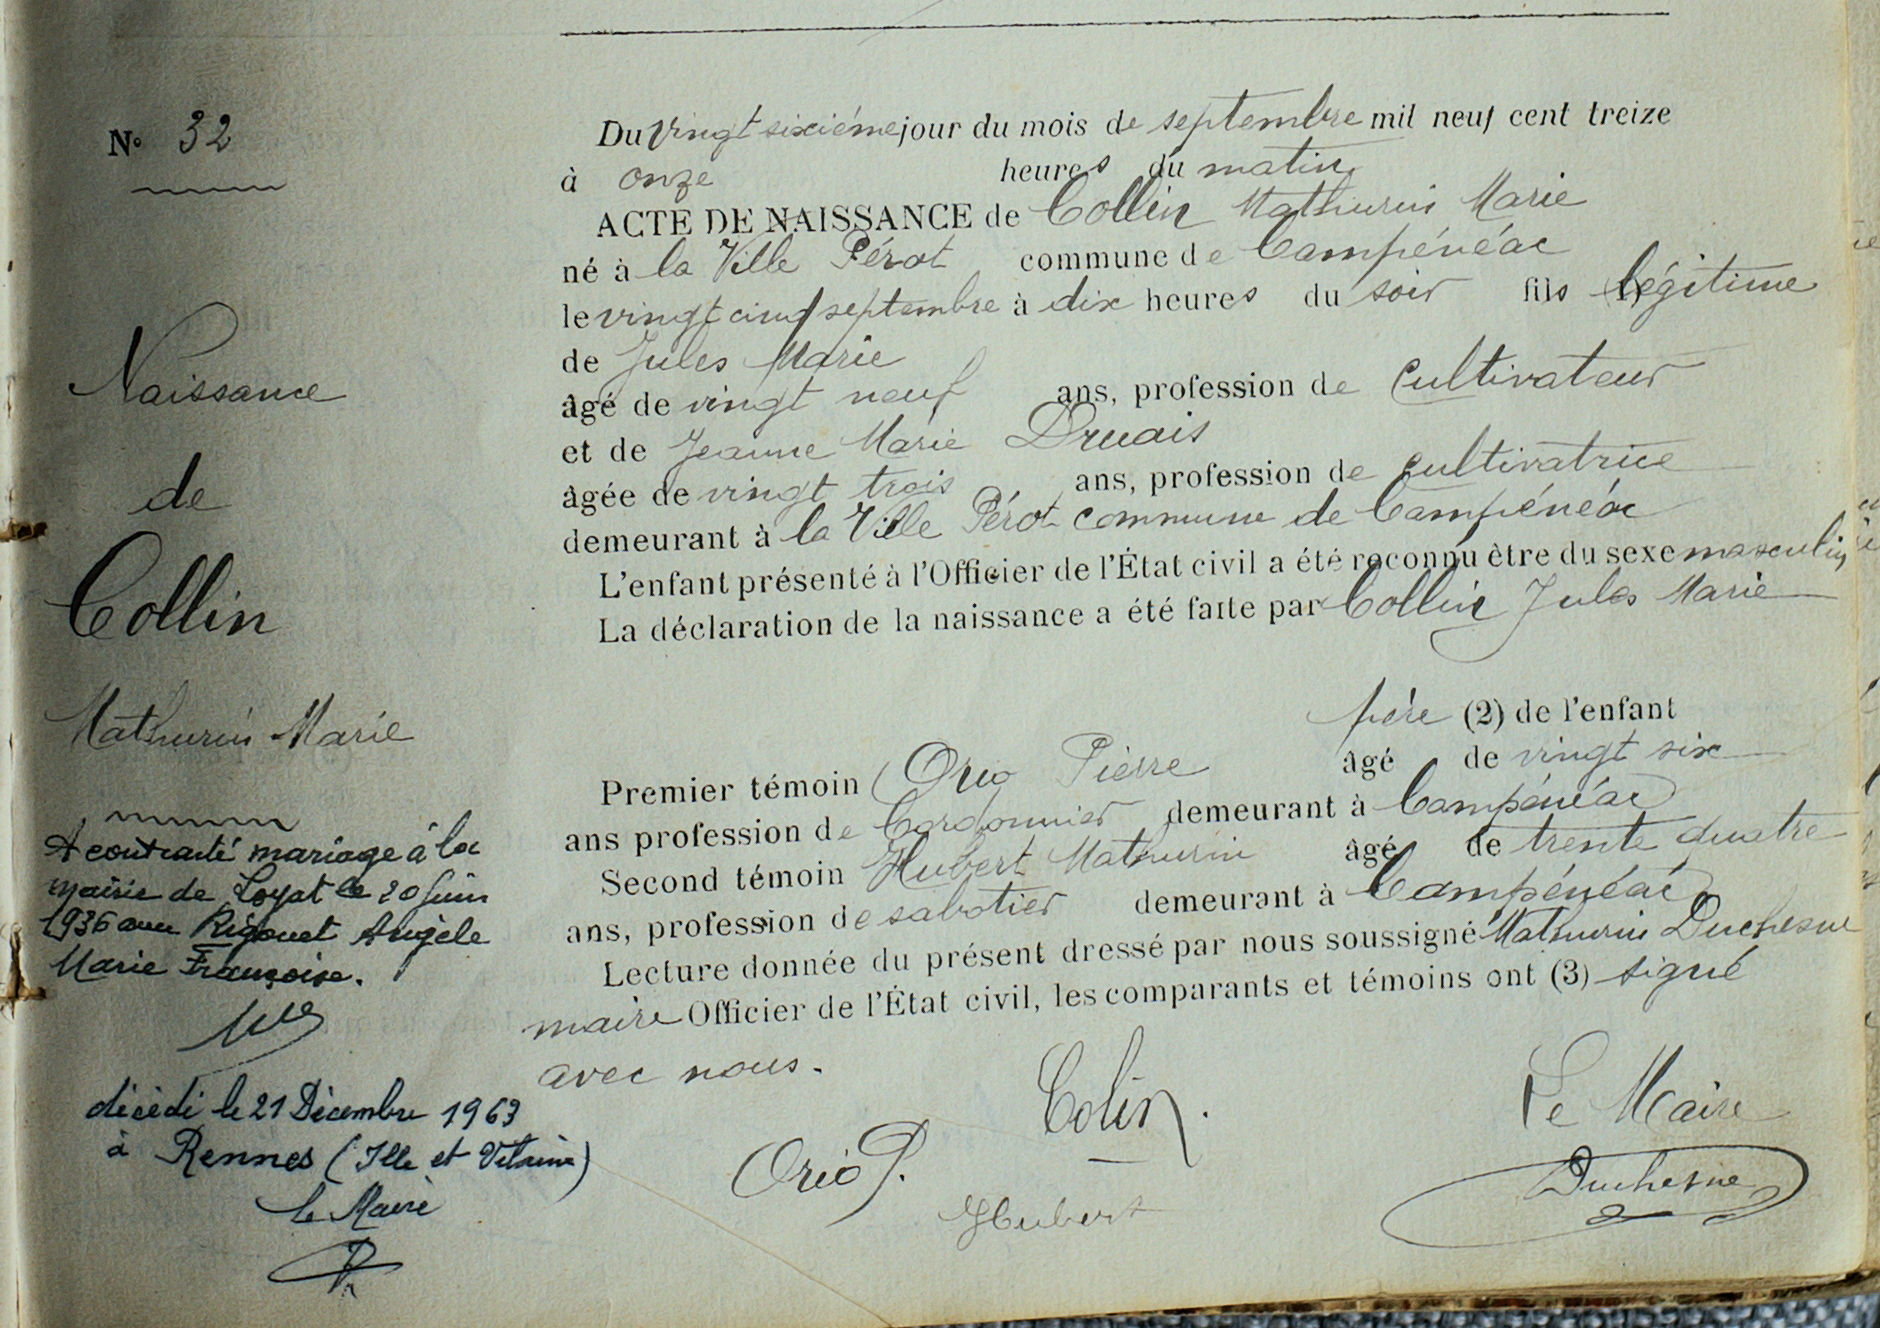 N° 32
Naissance
de
Collin
Mathurin Marie
A contracté mariage à la
mairie de Loyat le 20 juin
1936 avec Rigouet Angèle
Marie Françoise.
décédé le 21 Décembre 1963
à Rennes (Ille et Vilaine)
le Maire
Du vingt sixième jour du mois de septembre mil neuf cent treize
à onze heures du matin
ACTE DE NAISSANCE de Collin Mathurin Marie
né à la Ville Pérot commune de Campénéac
le vingt cinq septembre à dix heures du soir fils légitime
de Jules Marie
âgé de vingt neuf ans, profession de cultivateur
et de Jeanne Marie Druais
âgée de vingt trois ans, profession de cultivatrice
demeurant à la Ville Pérot commune de Campénéac
L'enfant présenté à l'Officier de l'État civil a été reconnu être du sexe masculin
La déclaration de la naissance a été faite par Collin Jules Marie
père (2) de l'enfant
Premier témoin Orio Pierre âgé de vingt six
ans profession de Cordonnier demeurant à Campénéac
Second témoin Hubert Mathurin âgé de trente quatre
ans, profession de sabotier demeurant à Campénéac
Lecture donnée du présent dressé par nous soussigné Mathurin Duchesne
maire Officier de l'État civil, les comparants et témoins ont (3) signé
avec nous.
Colin.
Le Maire
Orio P.
Duchesne
Hubert